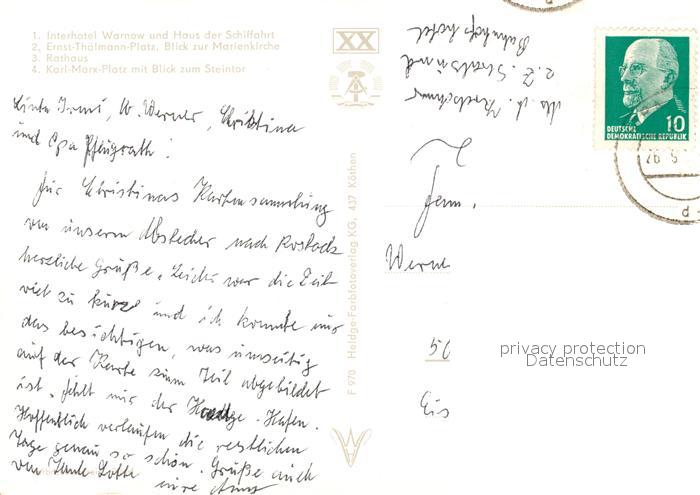 1. Interhotel Warnow und Haus der Schiffahrt
2. Ernst-Thälmann-Platz, Blick zur Marienkirche
3. Rathaus
4. Karl-Marx-Platz mit Blick zum Steintor
XX
Liebe Irmi, lb. Werner, Christina
und Opa Pflugrath!
Für Christinas Kartensammlung
von unserem Abstecher nach Rostock
herzliche Grüße. Leider war die Zeit
viel zu kurz und ich konnte nur
das besichtigen, was umseitig
auf der Karte zum Teil abgebildet
ist. Fehlt mir der Hafen.
Hoffentlich verlaufen die restlichen
Tage genau so schön. Grüße auch
von Tante Lotte eure
F 970 Heldge-Farbfotoverlag KG, 437 Köthen
z. Z. Stralsund
Bahnhofshotel
10
DEUTSCHE
DEMOKRATISCHE REPUBLIK
Fam.
Werne
56
Eis
privacy protection
Datenschutz